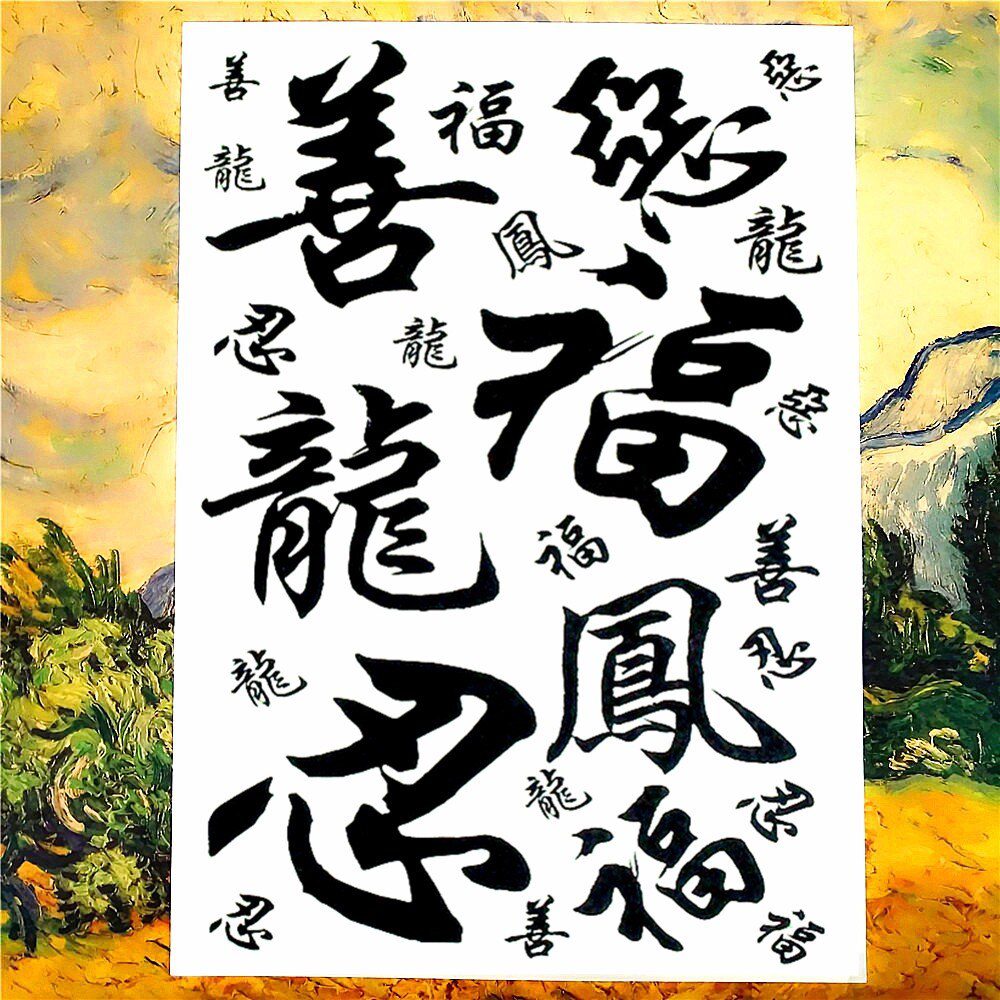 善
善
福
龍
鳳
龍
忍
龍
福
龍
福
善
鳳
龍
忍
龍
忍
福
忍
善
福